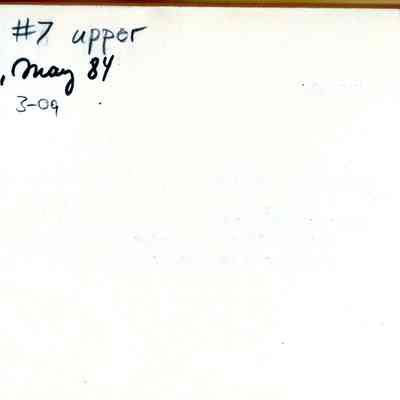 #7 upper
, May 84
3-09